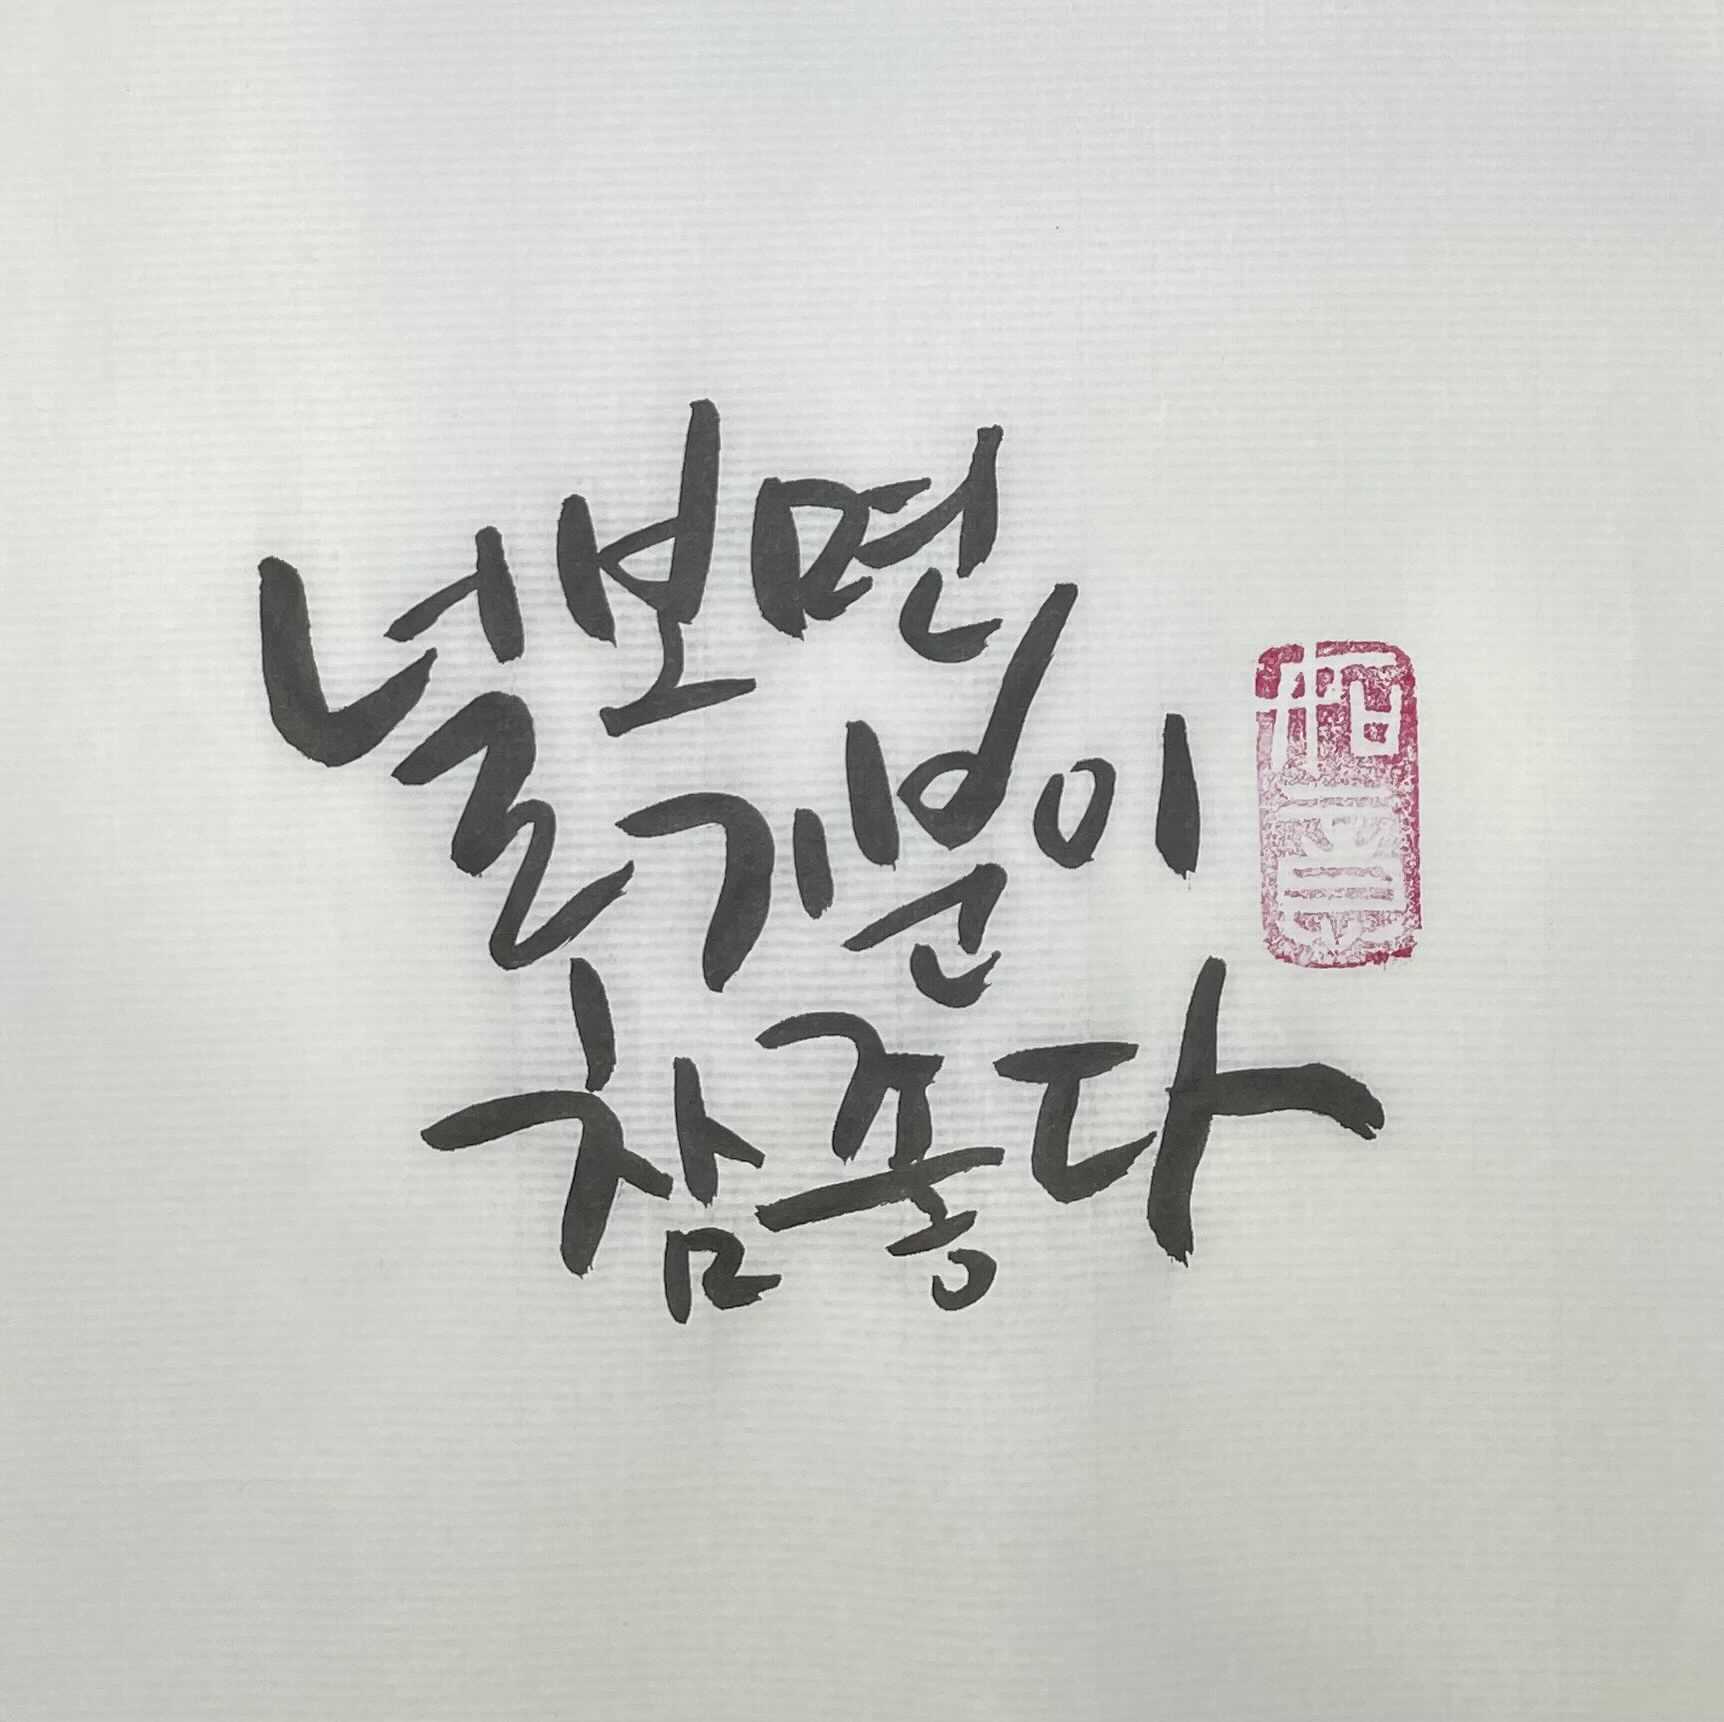 널 보면
기분이
참 좋다